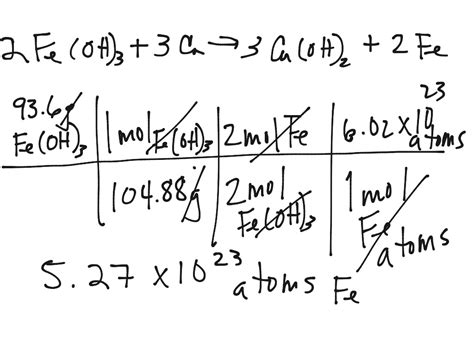 2 Fe(OH)₃ + 3 Ca → 3 Ca(OH)₂ + 2 Fe
93.6g Fe(OH)₃ | 1 mol Fe(OH)₃ | 2 mol Fe | 6.02 x 10²³ atoms
104.88g | 2 mol Fe(OH)₃ | 1 mol Fe atoms
5.27 x 10²³ atoms Fe